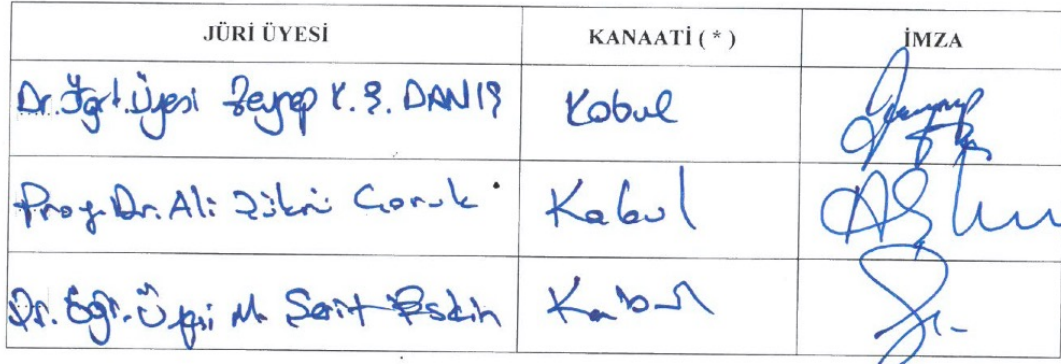 JÜRİ ÜYESİ KANAATİ ( * ) İMZA
Dr. Öğrt. Üyesi Zeynep K. Ş. DANIŞ Kabul
Prof. Dr. Ali Şükrü Çoruk Kabul
Dr. Öğr. Üyesi M. Kabul